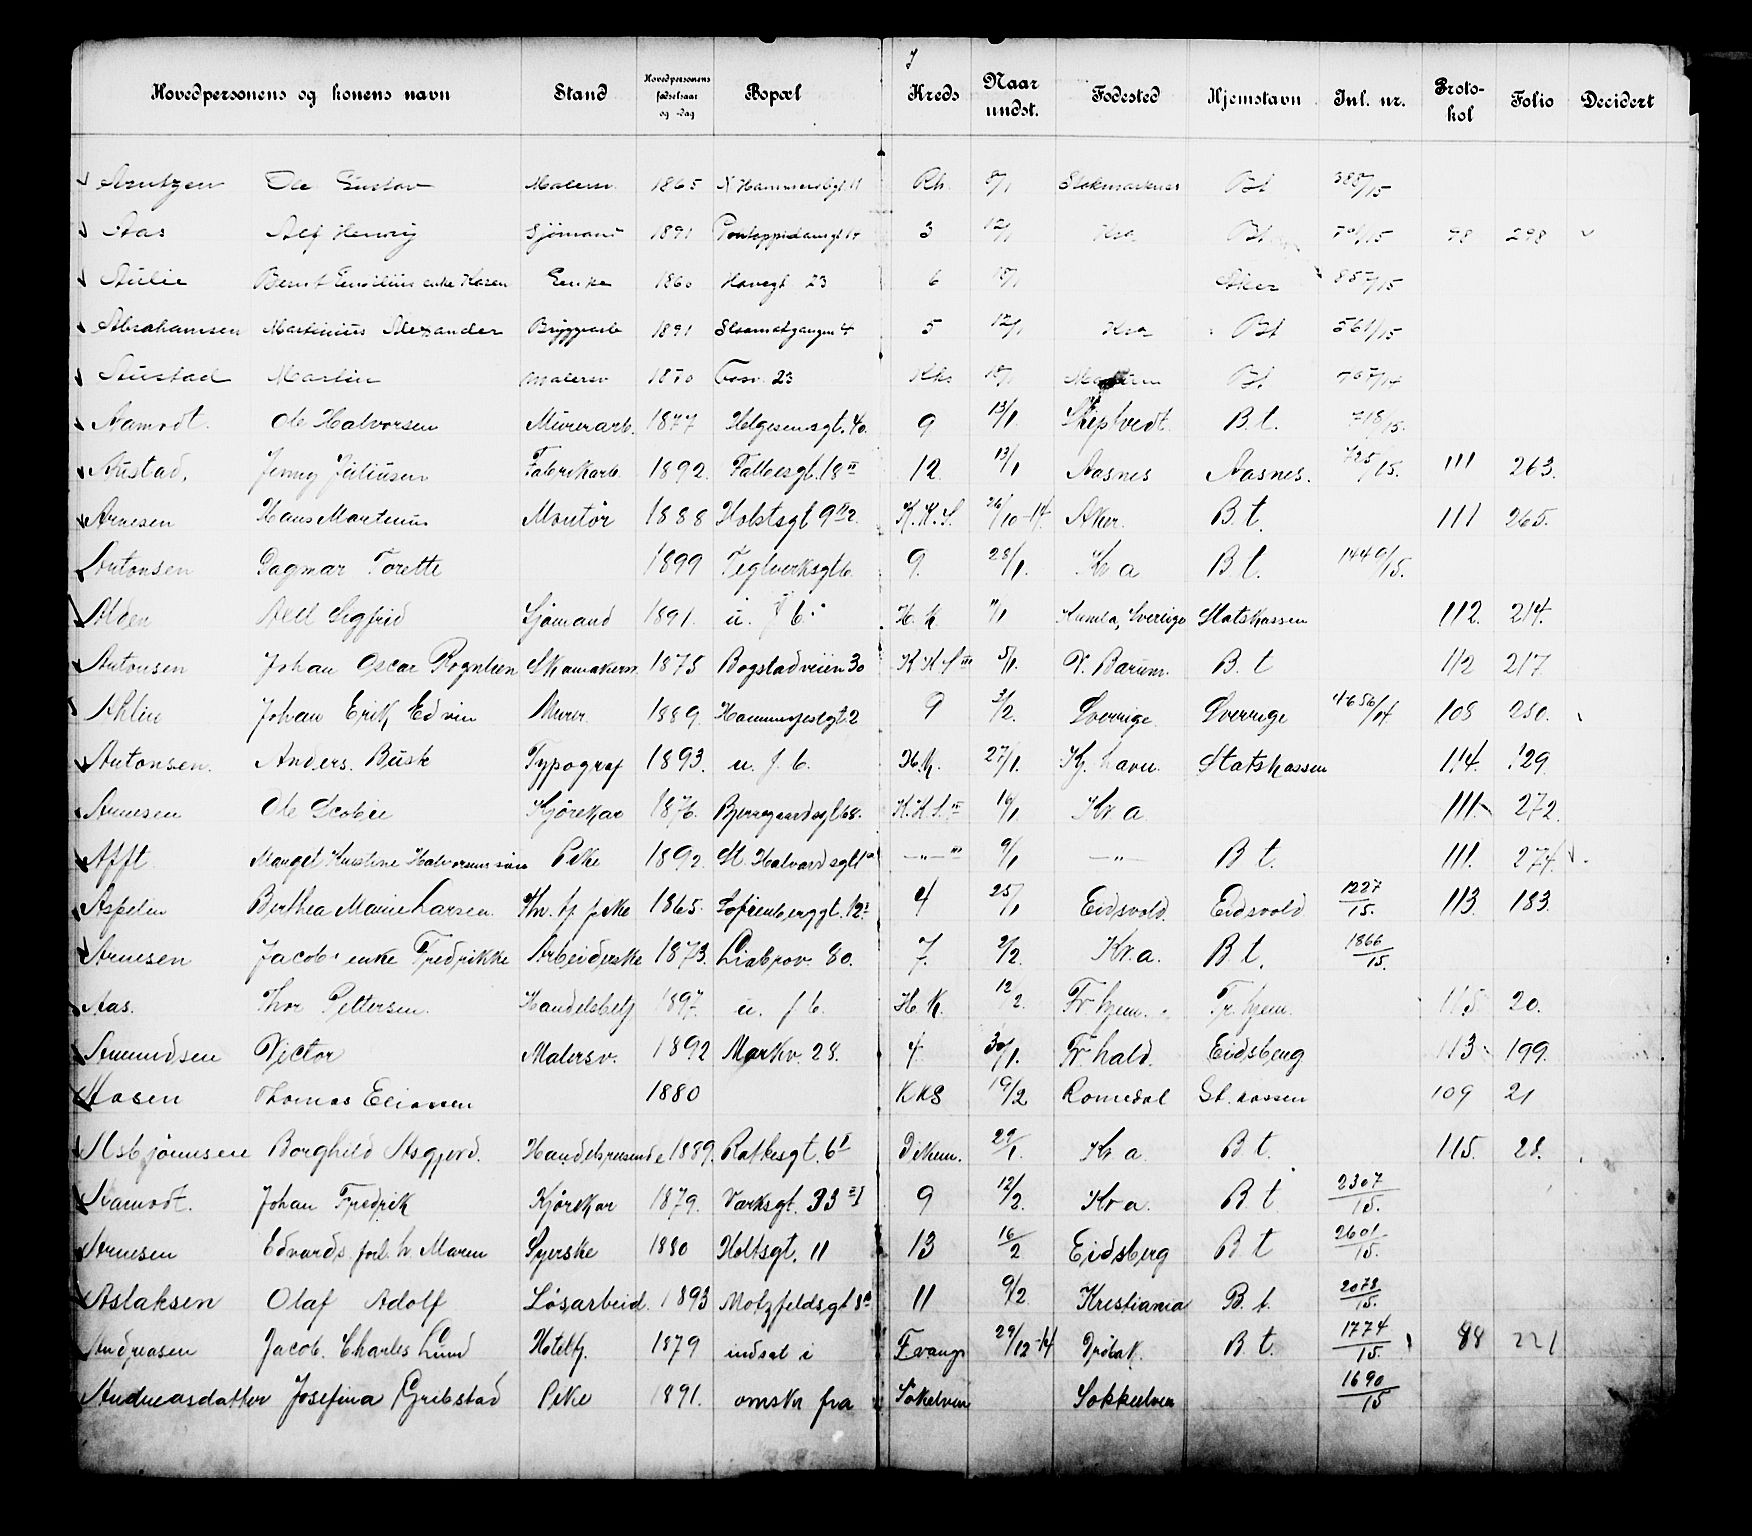 7
Hovedpersonens og konens navn Stand Hovedpersonens fødselsaar og -dag Bopæl Kreds Naar undst. Fødested Hjemstavn Inl. nr. Protokol Folio Decidert
Arntzen Ole Gustav Malersv. 1865 N Hammersbgt 11 Rh. 8/1 Stokmarknes Bt 388/15
Aas Alf Henry Sjømand 1891 Pontoppidansgt 17 3 12/1 Kra Bt 701/15 78 298
Aulie Bernt Emilius enke Karen Enke 1860 Havegt 23 6 15/1 Aker 857/15
Abrahamsen Martinius Alexander Bryggearb 1891 5 12/1 Kra Bt 561/15
Austad Martin Malersv 1870 Fosv. 23 KKS 15/1 Bt
Aamodt. Ole Halvorsen Murerarb. 1877 Helgesensgt. 40. 9 13/1 Skiptvedt. B.t. 718/15.
Austad. Jenny Juliusen Fabrikarb. 1892. Falbesgt. 18 II 12. 13/1 Aasnes Aasnes. 725/15. 111 263.
Arnesen Hans Martinius Montør 1888 Holstsgt 9 II 2. K.K.S. 26/10-14. Aker. B.t. 111 265.
Antonsen Dagmar Torette 1899 Teglverksgt 6. 9. 28/1. Kr a B t. 1440/15.
Alden Axel Sigfrid Sjømand 1891. u. f b. H. K. 11/1 Kumla, Sverige Statskassen 112. 214.
Antonsen Johan Oscar Rognlien Skomakersv. 1875 Bogstadveien 30 K K S III 5/1. V. Bærum. B. t 112 217.
Ahlin Johan Erik Edvin Murer. 1889. 9 3/2. Sverrige. Sverrige 4656/14 108 250.
Antonsen. Anders. Busk Typograf 1893. u. f. b. H.K. 27/1. Kj. havn. Statskassen 114. 129.
Arnesen Ole Scobie Kjørekar 1876. Bjerregaardsgt 68. K.K.S. II 16/1 Kr a. 111. 272.
Afft. Margot Kristine Halvorsens Pike 1892. St. Halvardsgt 1 a —"— III 9/1 —"— B t. 111. 274.
Aspelin Berthea Marie Larsen. pike 1865. Sofienberggt. 12 I 4 25/1 Eidsvold. Eidsvold 1227/15. 113. 183.
Arnesen Jacobs enke Fredrikke Arbeiderske 1873. Liabrov. 80. 7. 2/2. Kr. a. B t. 1866/15.
Aas. Thor Pettersen. Handelsbetj 1897. u. f b. H. K. 12/2. Fr. hjem. Fr. hjem. 115 20.
Amundsen Victor Malersv. 1892 Markv. 28. 4. 30/1. Fr. hald. Eidsberg 113 199.
Aasen Thomas Eliassen 1880 KKS 19/2 Romedal St. kassen 109 21
Asbjørnsen Borghild Asgjerd. Handelsreisende 1889. Ratkesgt. 6 I Dikem. 29/1. Kr a. B t. 115. 28.
Aamodt. Johan Fredrik Kjørekar 1879. Værksgt. 33 II 9 12/2. Kr a. B. t 2307/15.
Arnesen Edvards forl. h. Maren Syerske 1880 Holtsgt. 11 13 16/2 Eidsberg B t 2601/15.
Aslaksen Olaf Adolf Løsarbeid. 1893 Motzfeldsgt 8 a 11 9/2. Kristiania B. t. 2073/15.
Andreasen Jacob. Charles Lund Hotelbtj. 1879 indsat i F.vangs 29/12-14 Drøbak. B. t. 1774/15 88 221
Andreasdatter Josefina Gribstad Pike 1891. omskr fra Søkelven Søkkelven 1690/15